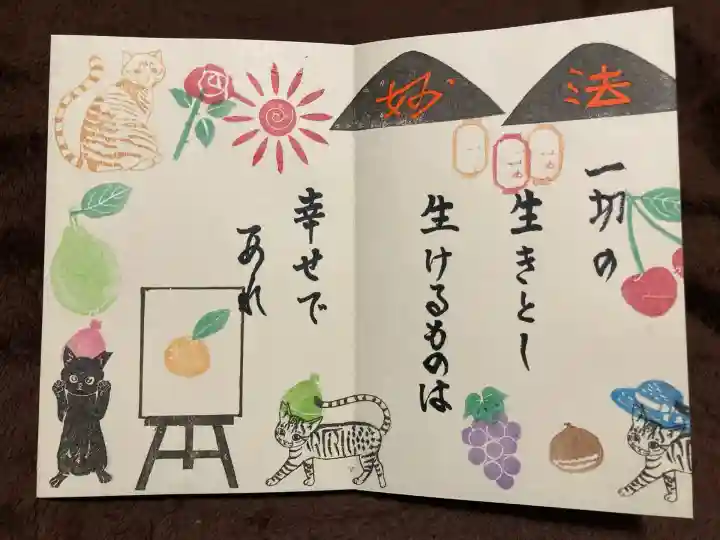 妙 法
一切の
生きとし
生けるものは
幸せで
あれ